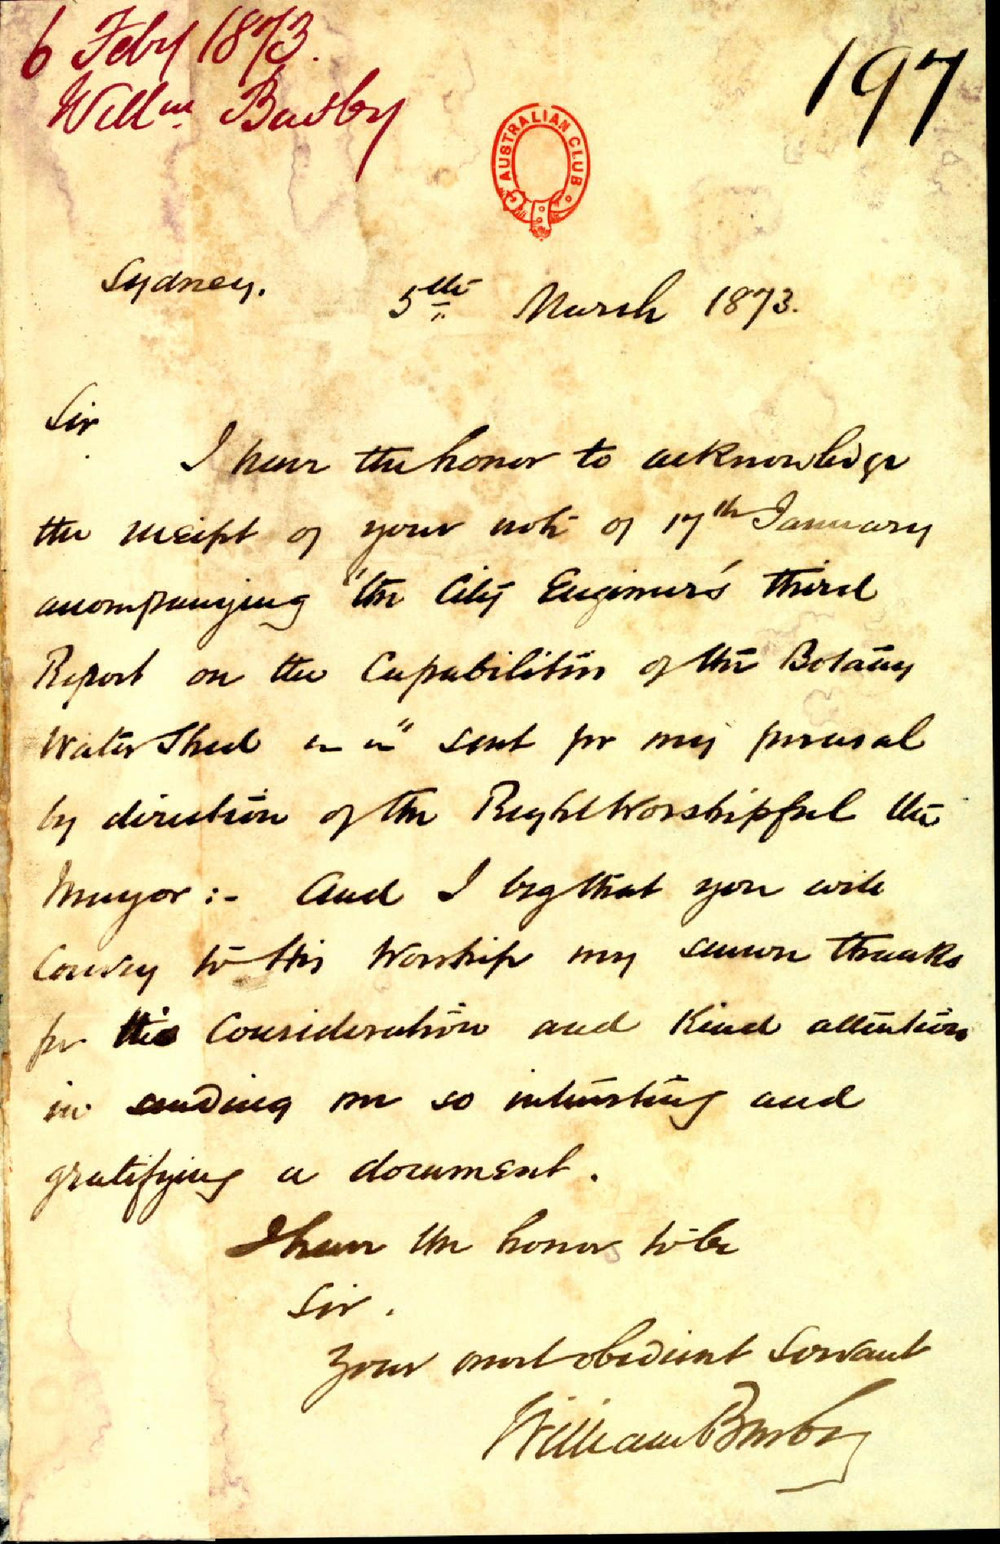 6 Feby 1873.
Willm Busby
197
AUSTRALIAN CLUB
Sydney. 5th March 1873.
Sir
I have the honor to acknowledge
the receipt of your note of 17th January
accompanying "the City Engineer's third
Report on the Capabilities of the Botany
Water Shed " sent for my perusal
by direction of the Right Worshipful the
Mayor :- And I beg that you will
Convey to His Worship my sincere thanks
for his Consideration and Kind attention
in sending me so interesting and
gratifying a document.
I have the honor to be
Sir.
Your most obedient Servant
William Busby